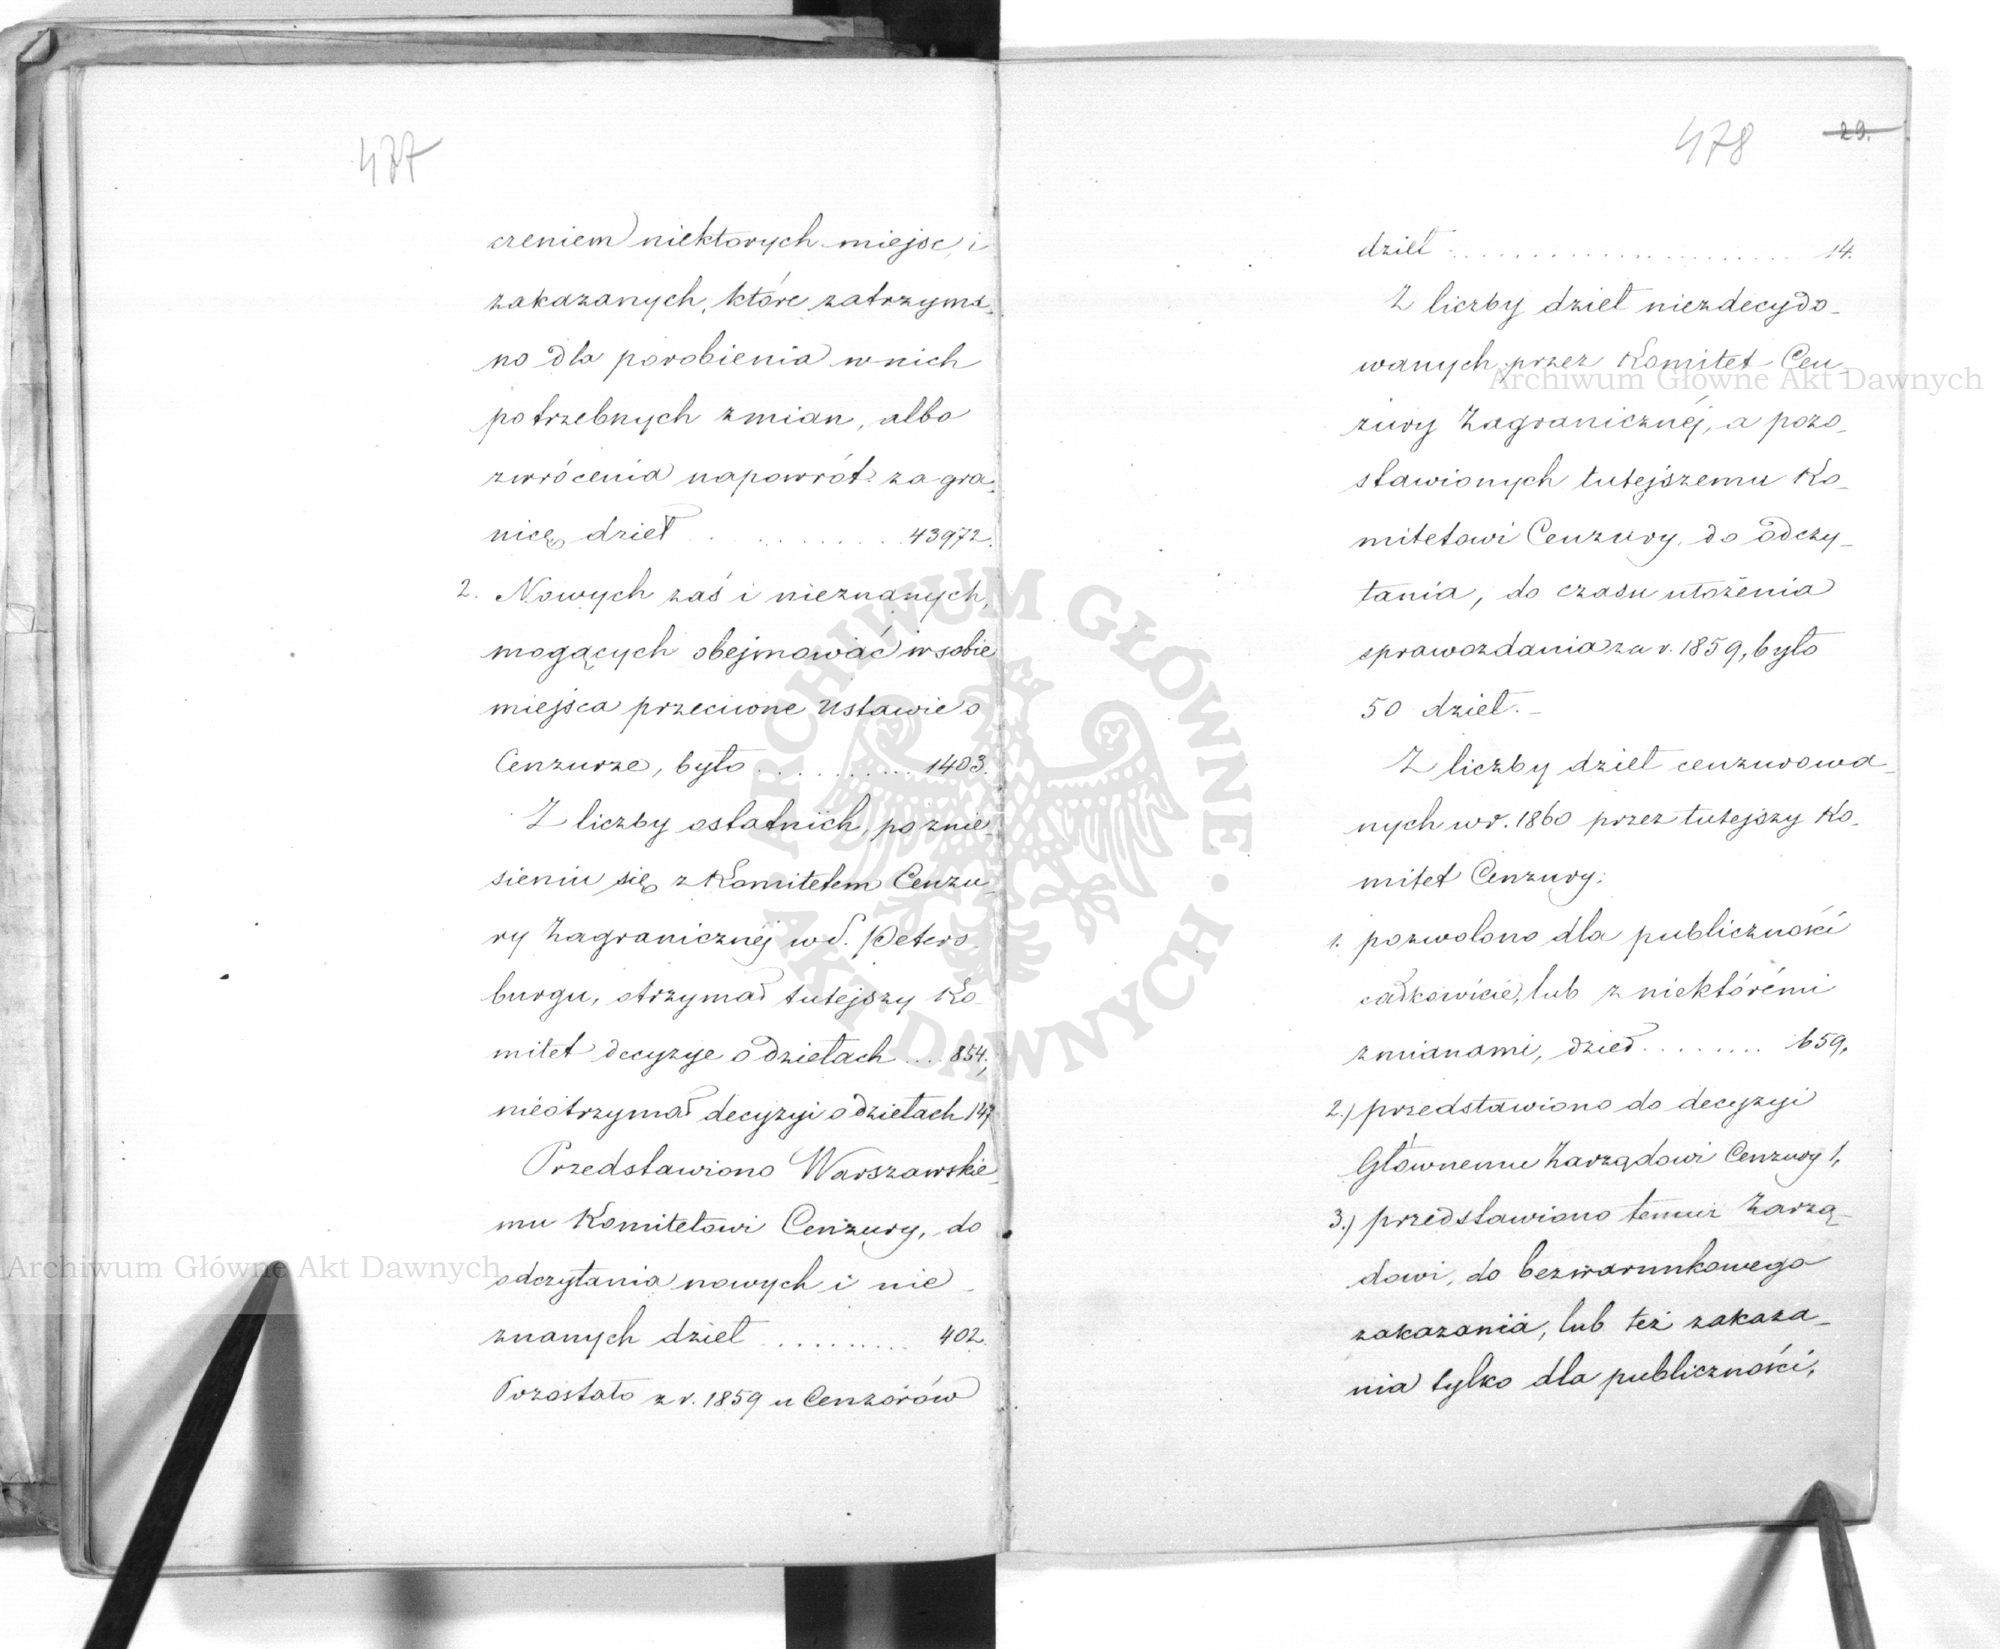 477
czeniem niektorych miejsc, i
zakazanych, które zatrzyma-
no dla porobienia w nich
potrzebnych zmian, albo
zwrócenia napowrót za gra-
nicę, dzieł . . . . . . . . . . 43972.
2. Nowych zaś i nieznanych,
mogących obejmować w sobie
miejsca przeciwne Ustawie o
Cenzurze, było . . . . . . . . . . 1403.
Z liczby ostatnich, po znie-
sieniu się z Komitetem Cenzu-
ry Zagranicznéj w S. Peters-
burgu, otrzymał tutejszy Ko-
mitet decyzye o dziełach .... 854;
nieotrzymał decyzyi o dziełach 147
Przedstawiono Warszawskie-
mu Komitetowi Cenzury, do
odczytania nowych i nie-
znanych dzieł . . . . . . . . . . 402.
Pozostało z r. 1859 u Cenzorów
478 29.
dzieł . . . . . . . . . . . . . . . . . . . . 14.
Z liczby dzieł niezdecydo-
wanych przez Komitet Cen-
zury Zagranicznéj, a pozo-
stawionych tutejszemu Ko-
mitetowi Cenzury, do odczy-
tania, do czasu ułożenia
sprawozdania za r. 1859, było
50 dzieł. –
Z liczby dzieł cenzurowa-
nych w r. 1860 przez tutejszy Ko-
mitet Cenzury:
1. pozwolono dla publiczności
całkowicie, lub z niektórémi
zmianami, dzieł . . . . . . . . 659,
2.) przedstawiono do decyzyi
Głównemu Zarządowi Cenzury 1,
3.) przedstawiono temuż Zarzą-
dowi, do bezwarunkowego
zakazania, lub też zakaza-
nia tylko dla publiczności,
Archiwum Główne Akt Dawnych
Archiwum Główne Akt Dawnych
ARCHIWUM GŁÓWNE • AKT DAWNYCH •